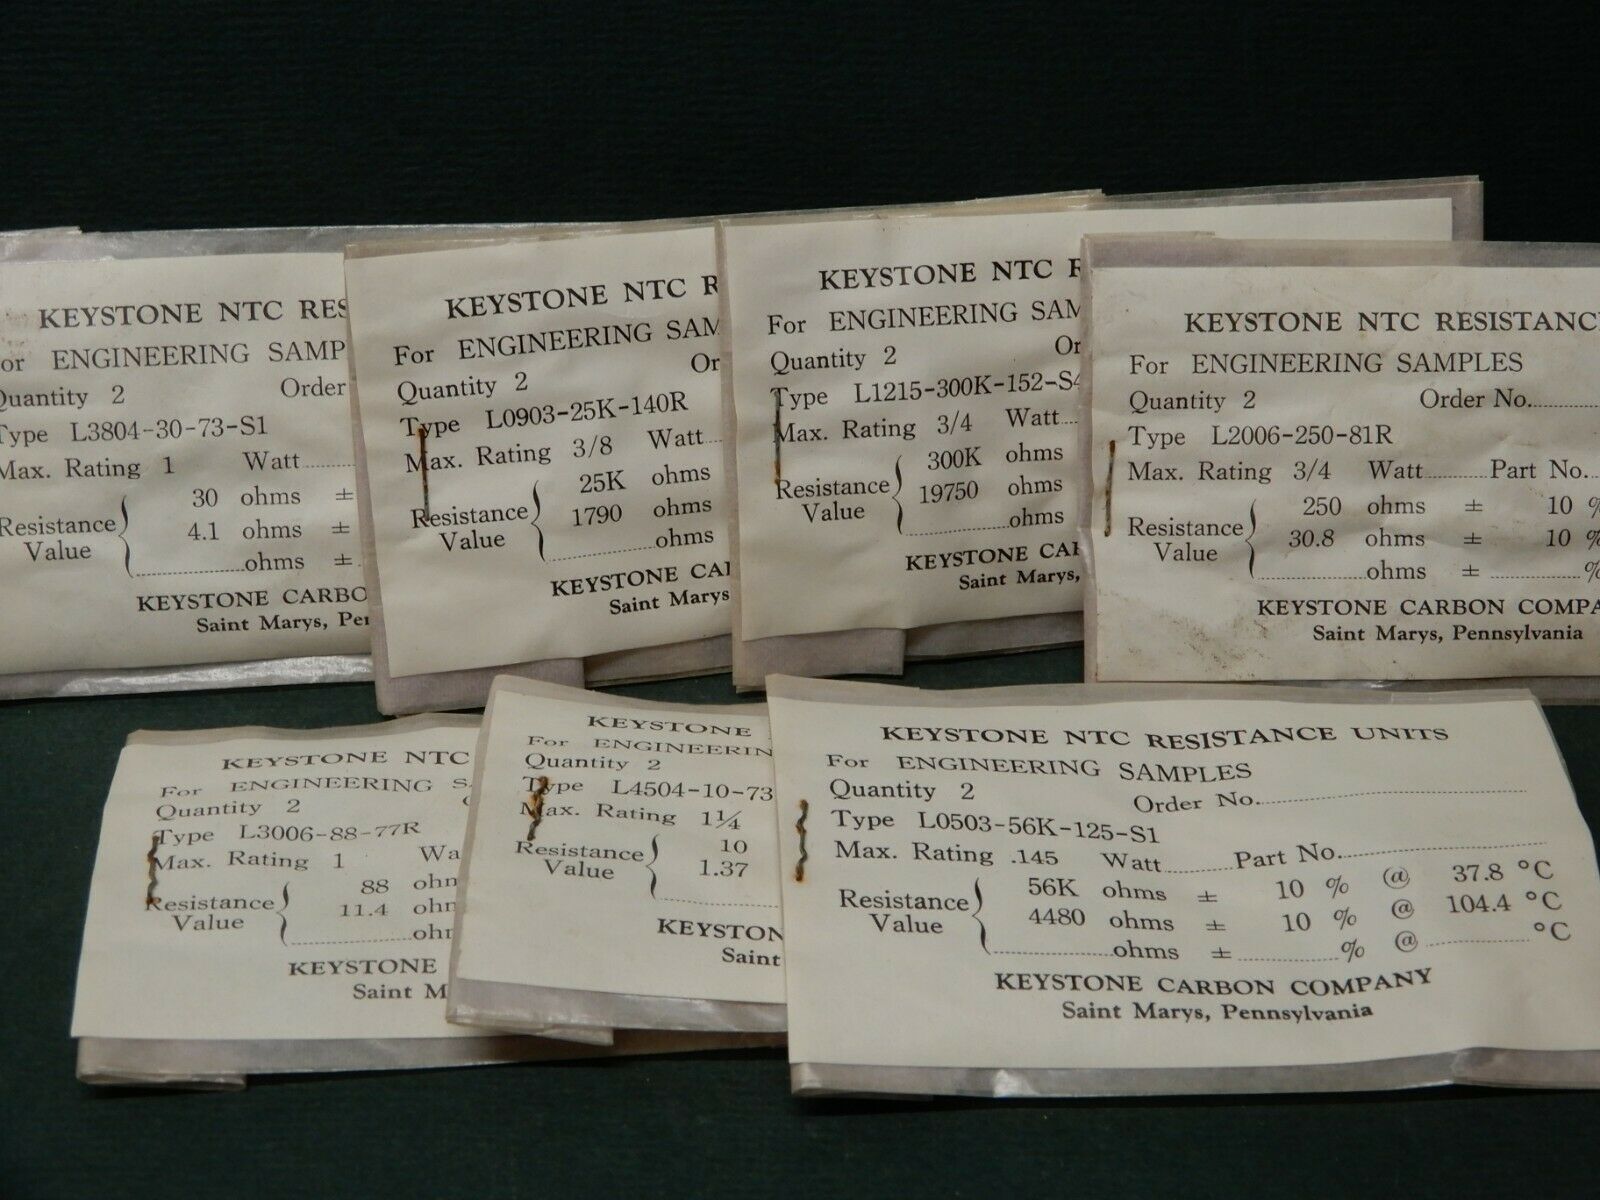 KEYSTONE NTC RES
or ENGINEERING SAMP
Quantity 2 Order
Type L3804-30-73-S1
Max. Rating 1 Watt
Resistance Value
30 ohms ±
4.1 ohms ±
ohms ±
KEYSTONE CARBO
Saint Marys, Pe
KEYSTONE NTC R
For ENGINEERING SAM
Quantity 2 Or
Type L0903-25K-140R
Max. Rating 3/8 Watt
Resistance Value
25K ohms
1790 ohms
ohms
KEYSTONE CA
Saint Marys
KEYSTONE NTC R
For ENGINEERING SAM
Quantity 2 Or
Type L1215-300K-152-S4
Max. Rating 3/4 Watt
Resistance Value
300K ohms
19750 ohms
ohms
KEYSTONE CA
Saint Marys,
KEYSTONE NTC RESISTANC
For ENGINEERING SAMPLES
Quantity 2 Order No.
Type L2006-250-81R
Max. Rating 3/4 Watt Part No.
Resistance Value
250 ohms ± 10 %
30.8 ohms ± 10 %
ohms ± %
KEYSTONE CARBON COMPA
Saint Marys, Pennsylvania
KEYSTONE NTC
For ENGINEERING S
Quantity 2
Type L3006-88-77R
Max. Rating 1 Wa
Resistance Value
88 ohm
11.4 ohm
ohm
KEYSTONE
Saint M
KEYSTONE
For ENGINEERIN
Quantity 2
Type L4504-10-73
Max. Rating 1¼
Resistance Value
10
1.37
KEYSTON
Saint
KEYSTONE NTC RESISTANCE UNITS
For ENGINEERING SAMPLES
Quantity 2 Order No.
Type L0503-56K-125-S1
Max. Rating .145 Watt Part No.
Resistance Value
56K ohms ± 10 % @ 37.8 °C
4480 ohms ± 10 % @ 104.4 °C
ohms ± % @ °C
KEYSTONE CARBON COMPANY
Saint Marys, Pennsylvania